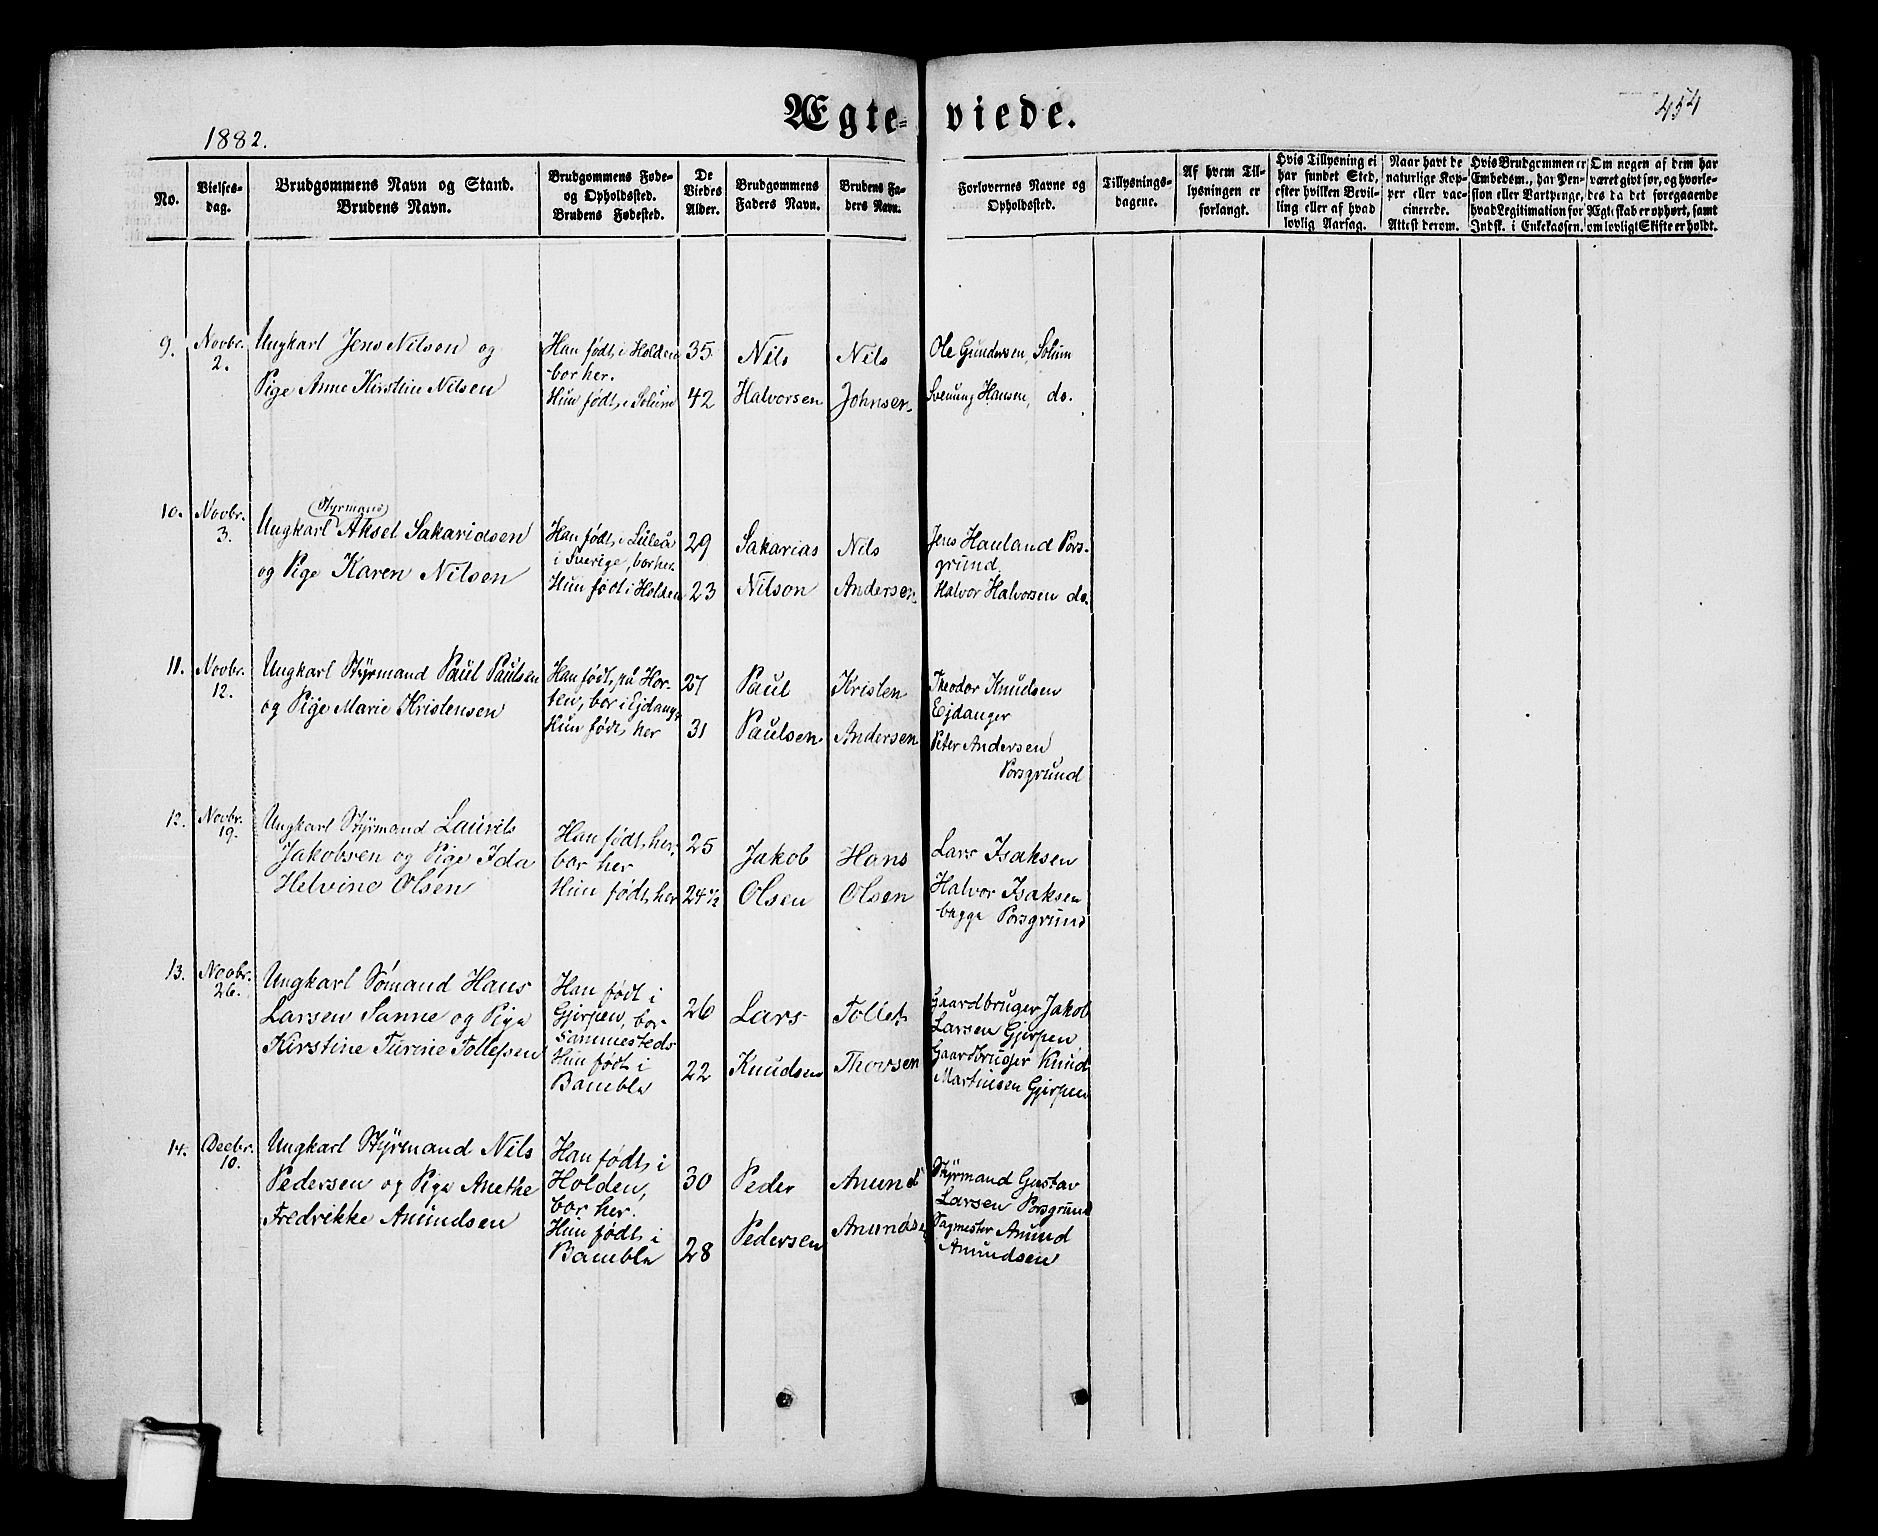 Ægte= viede.
1882.
454
No.
Vielses-
dag.
Brudgommens Navn og Stand.
Brudens Navn.
Brudgommens Føde-
og Opholdssted.
Brudens Fødested.
De
Viedes
Alder.
Brudgommens
Faders Navn.
Brudens Fa-
ders Navn.
Forlovernes Navne og
Opholdssted.
Tillysnings-
dagene.
Af hvem Til-
lysningen er
forlangt.
Hvis Tillysning ei
har fundet Sted,
efter hvilken Bevil-
ling eller af hvad
lovlig Aarsag.
Naar havt de
naturlige Kop-
per eller vac-
cinerede.
Attest derom.
Hvis Brudgommen er
Embedsm., har Pen-
sion eller Vartpenge,
hvad Legitimation for
Indsk. i Enkekassen.
Om nogen af dem har
været gift før, og hvorle-
des da det foregaaende
Ægteskab er ophørt, samt
om lovligt Skifte er holdt.
9.
Novbr.
2.
Ungkarl Jens Nilsen og
Pige Anne Kirstine Nilsen
Han født i Holden
bor her.
Hun født i Solum
35
42
Nils
Halvorsen
Nils
Johnsen
Ole Gundersen, Solum
Svenung Hansen, do.
10.
Novbr.
3.
(Styrmand)
Ungkarl Aksel Sakaridsen
og Pige Karen Nilsen
Han født i Luleå
i Sverige, bor her.
Hun født i Holden
29
23
Sakarias
Nilson
Nils
Andersen
Jens Hauland Pors-
grund.
Halvor Halvorsen do.
11.
Novbr.
12.
Ungkarl Styrmand Paul Paulsen
og Pige Marie Kristensen
Han født på Hor-
ten, bor i Ejdanger
Hun født her
27
31
Paul
Paulsen
Kristen
Andersen
Theodor Knudsen
Ejdanger
Peter Andersen
Porsgrund
12.
Novbr.
19.
Ungkarl Styrmand Laurits
Jakobsen og Pige Ida
Helvine Olsen
Han født her,
bor her
Hun født her
25
24 1/2
Jakob
Olsen
Hans
Olsen
Lars Isaksen
Halvor Isaksen
begge Porsgrund
13.
Novbr.
26.
Ungkarl Sømand Hans
Larsen Sanne og Pige
Kirstine Turine Tollefsen
Han født i
Gjerpen, bor
sammesteds
Hun født i
Bamble
26
22
Lars
Knudsen
Tollef
Thovsen
Gaardbruger Jakob
Larsen Gjerpen,
Gaardbruger Knud
Martinsen Gjerpen
14.
Decbr.
10.
Ungkarl Styrmand Nils
Pedersen og Pige Anethe
Fredrikke Amundsen
Han født i
Holden,
bor her.
Hun født i
Bamble
30
28
Peder
Pedersen
Amund
Amundsen
Styrmand Gustav
Larsen Porsgrund
Sagmester Amund
Amundsen